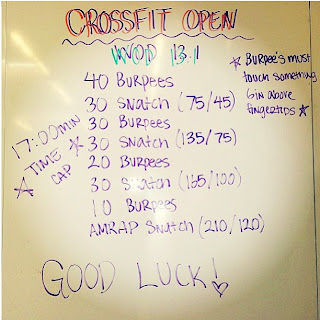 CROSSFIT OPEN
WOD 13.1
40 BURPEES
30 SNATCH (75/45)
30 BURPEES
30 SNATCH (135/75)
20 BURPEES
30 SNATCH (165/100)
10 BURPEES
AMRAP SNATCH (210/120)
☆ BURPEE'S MUST
TOUCH SOMETHING
6in ABOVE
fingertips ☆
17:00 MIN
☆ TIME ☆
CAP
GOOD LUCK! ♡